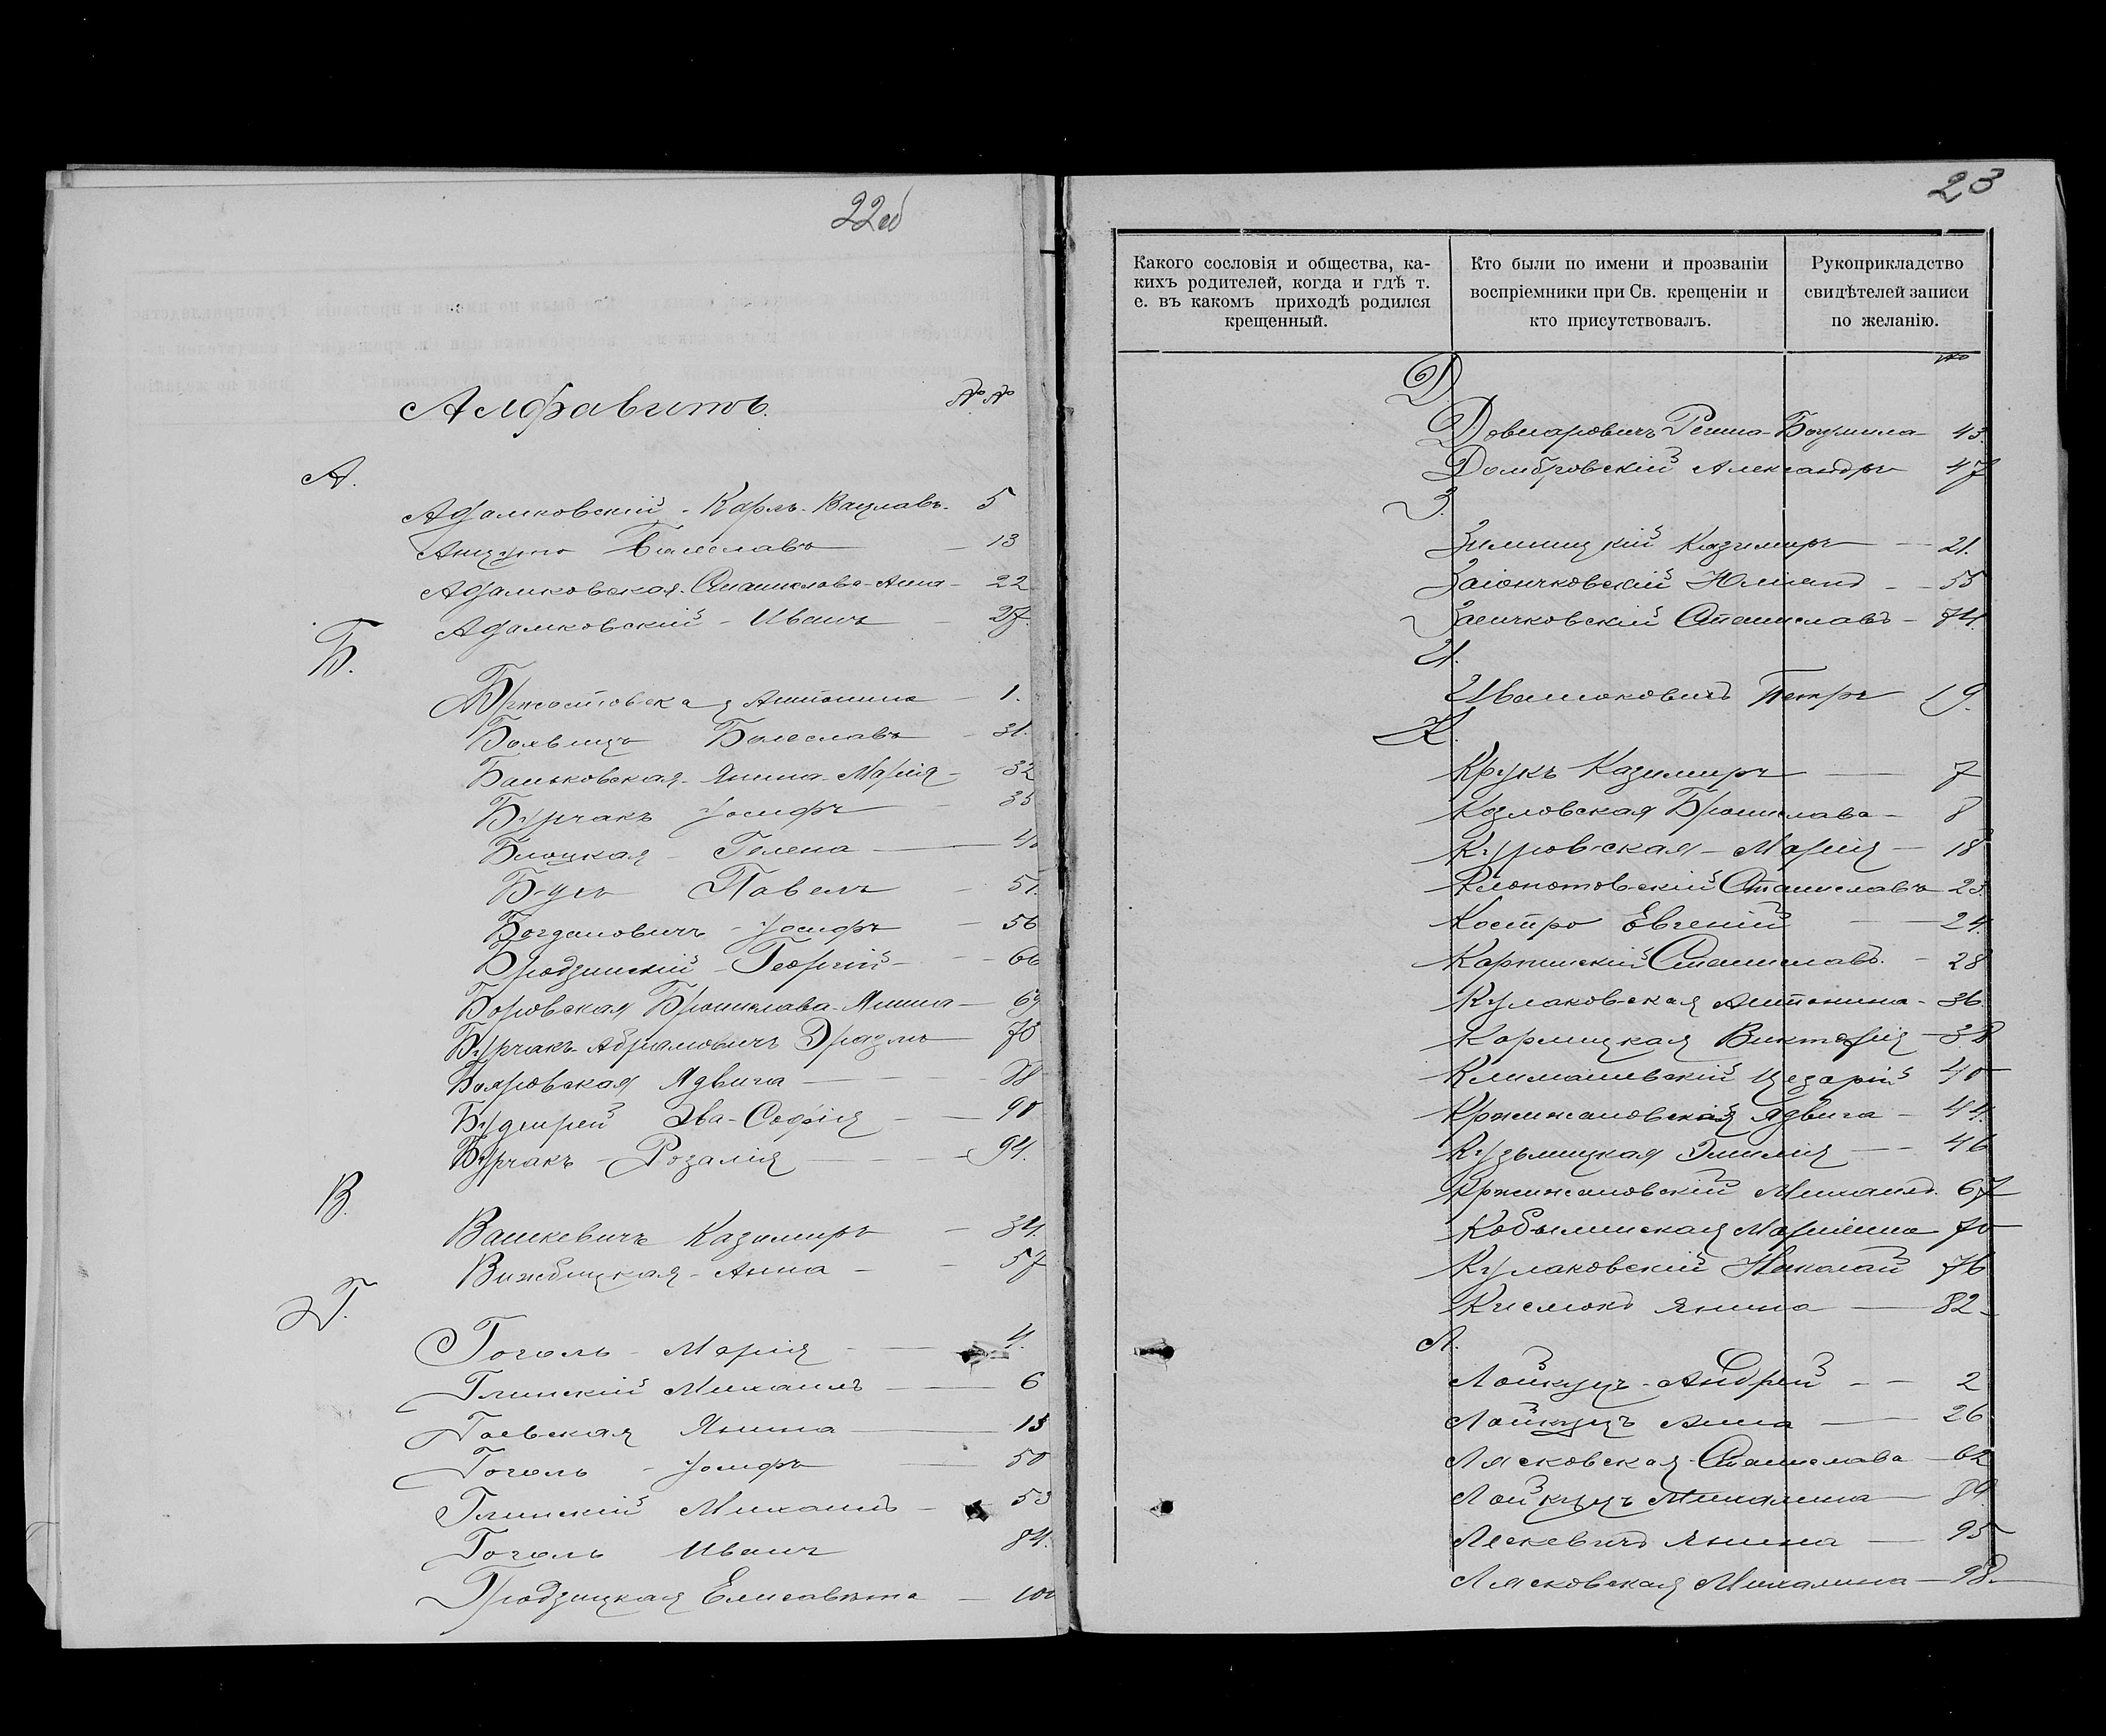 22об
Алфавитъ. №№
А.
Адамковскій - Карлъ-Вацлавъ - 5
Анцуто Болеславъ - 13
Адамковская - Станислава-Анна - 22
Адамковскій - Иванъ - 27.
Б.
Бржостовская Антонина - 1.
Болеславъ - 31.
Баньковская - Янина-Марія - 32
Бурчакъ Іосифъ - 35
Блоцкая - Гелена
Буль Павелъ - 51.
Богдановичъ - Іосифъ - 56
Бродзинскій - Георгій - 66
Боровская Бронислава-Янина - 69
Бурчакъ Абрамовичъ Эразмъ
Бояровская Ядвига - 88
Эва-Софія - 90
Бурчакъ - Розалія - 94.
В.
Вашкевичъ Казимиръ - 34.
Вижбицкая - Анна - 57
Г.
Гоголь - Марія - 4.
Глинскій Михаилъ - 6
Гаевская Янина - 15
Гоголь - Іосифъ - 50
Глинскій Михаилъ - 53
Гоголь Иванъ 84.
Гродзицкая Елисавета - 100
23
Какого сословія и общества, ка-
кихъ родителей, когда и гдѣ т.
е. въ какомъ приходѣ родился
крещенный.
Кто были по имени и прозваніи
воспріемники при Св. крещеніи и
кто присутствовалъ.
Рукоприкладство
свидѣтелей записи
по желанію.
№
Д.
Довнаровичъ Регина-Богумила 43.
Домбровскій Александръ 47
З.
Зимницкій Казимиръ - 21.
Заіончковскій Юліанъ - 55
Заенчковскій Станиславъ - 74.
И.
Ивашковичъ Петръ 19.
К.
Крукъ Казимиръ - 7
Козловская Бронислава - 8
Куровская - Марія - 18
Клопотовскій Станиславъ 23.
Костро Евгеній - 24.
Карпинскій Станиславъ. - 28
Кулаковская Антонина - 36.
Кормицкая Викторія - 38
Климашевскій Цезарій 40
Кржижановская Ядвига - 44.
Кузьмицкая Эмилія - 46
Кржижановскій Михаилъ. 67
Кобылинская Маріанна 70
Кулаковскій Николай 76
Янина - 82
Л.
Лойкуцъ - Андрей - 2
Лойкуцъ Анна - 26
Лясковская - Станислава - 62
Лойкуцъ Михалина - 89.
Лескевичъ Янина - 95
Лясковская Михалина - 98.